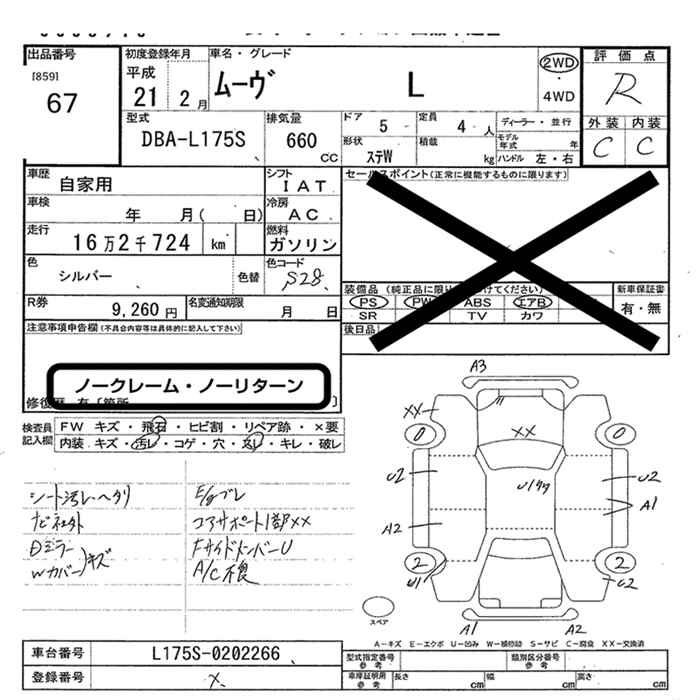 出品番号 初度登録年月 車名・グレード 2WD 評価点
[859] 平成 ムーヴ L ・ R
67 21 2月 4WD
型式 排気量 ドア 5 定員 4人 ディーラー・並行 外装 内装
DBA-L175S 660cc 形状 ステW 積載 kg モデル年式 年 C C
ハンドル 左・右
車歴 自家用 シフト IAT セールスポイント(正常に機能するものに限ります)
車検 年 月( 日) 冷房 AC
走行 16万2千724 km 燃料 ガソリン
色 シルバー 色替 色コード S28
装備品 (純正品に限り てください) 新車保証書
R券 9,260円 名変通知期限 月 日 PS PW ABS エアB 有・無
SR TV カワ
注意事項申告欄(不具合内容等は具体的に記入して下さい) 後日品
ノークレーム・ノーリターン
修復歴 有
検査員記入欄 FW キズ・飛石・ヒビ割・リペア跡・×要
内装 キズ・汚レ・コゲ・穴・スレ・キレ・破レ
シート汚レ・ヘタリ E/gブレ
ナビ社外 コアサポート1部××
Dミラー Fサイドメンバー U
Wカバー キズ A/C不良
A3
××
0 ×× 0
U2 U1 U2
A1
A2
2 2
U1 U2
スペア
A1 A2
A-キズ E-エクボ U-凹み W-補修跡 S-サビ C-腐食 XX-交換済
車台番号 L175S-0202266 型式指定番号参考 類別区分番号参考
登録番号 × 車庫証明用参考 長さ cm 幅 cm 高さ cm